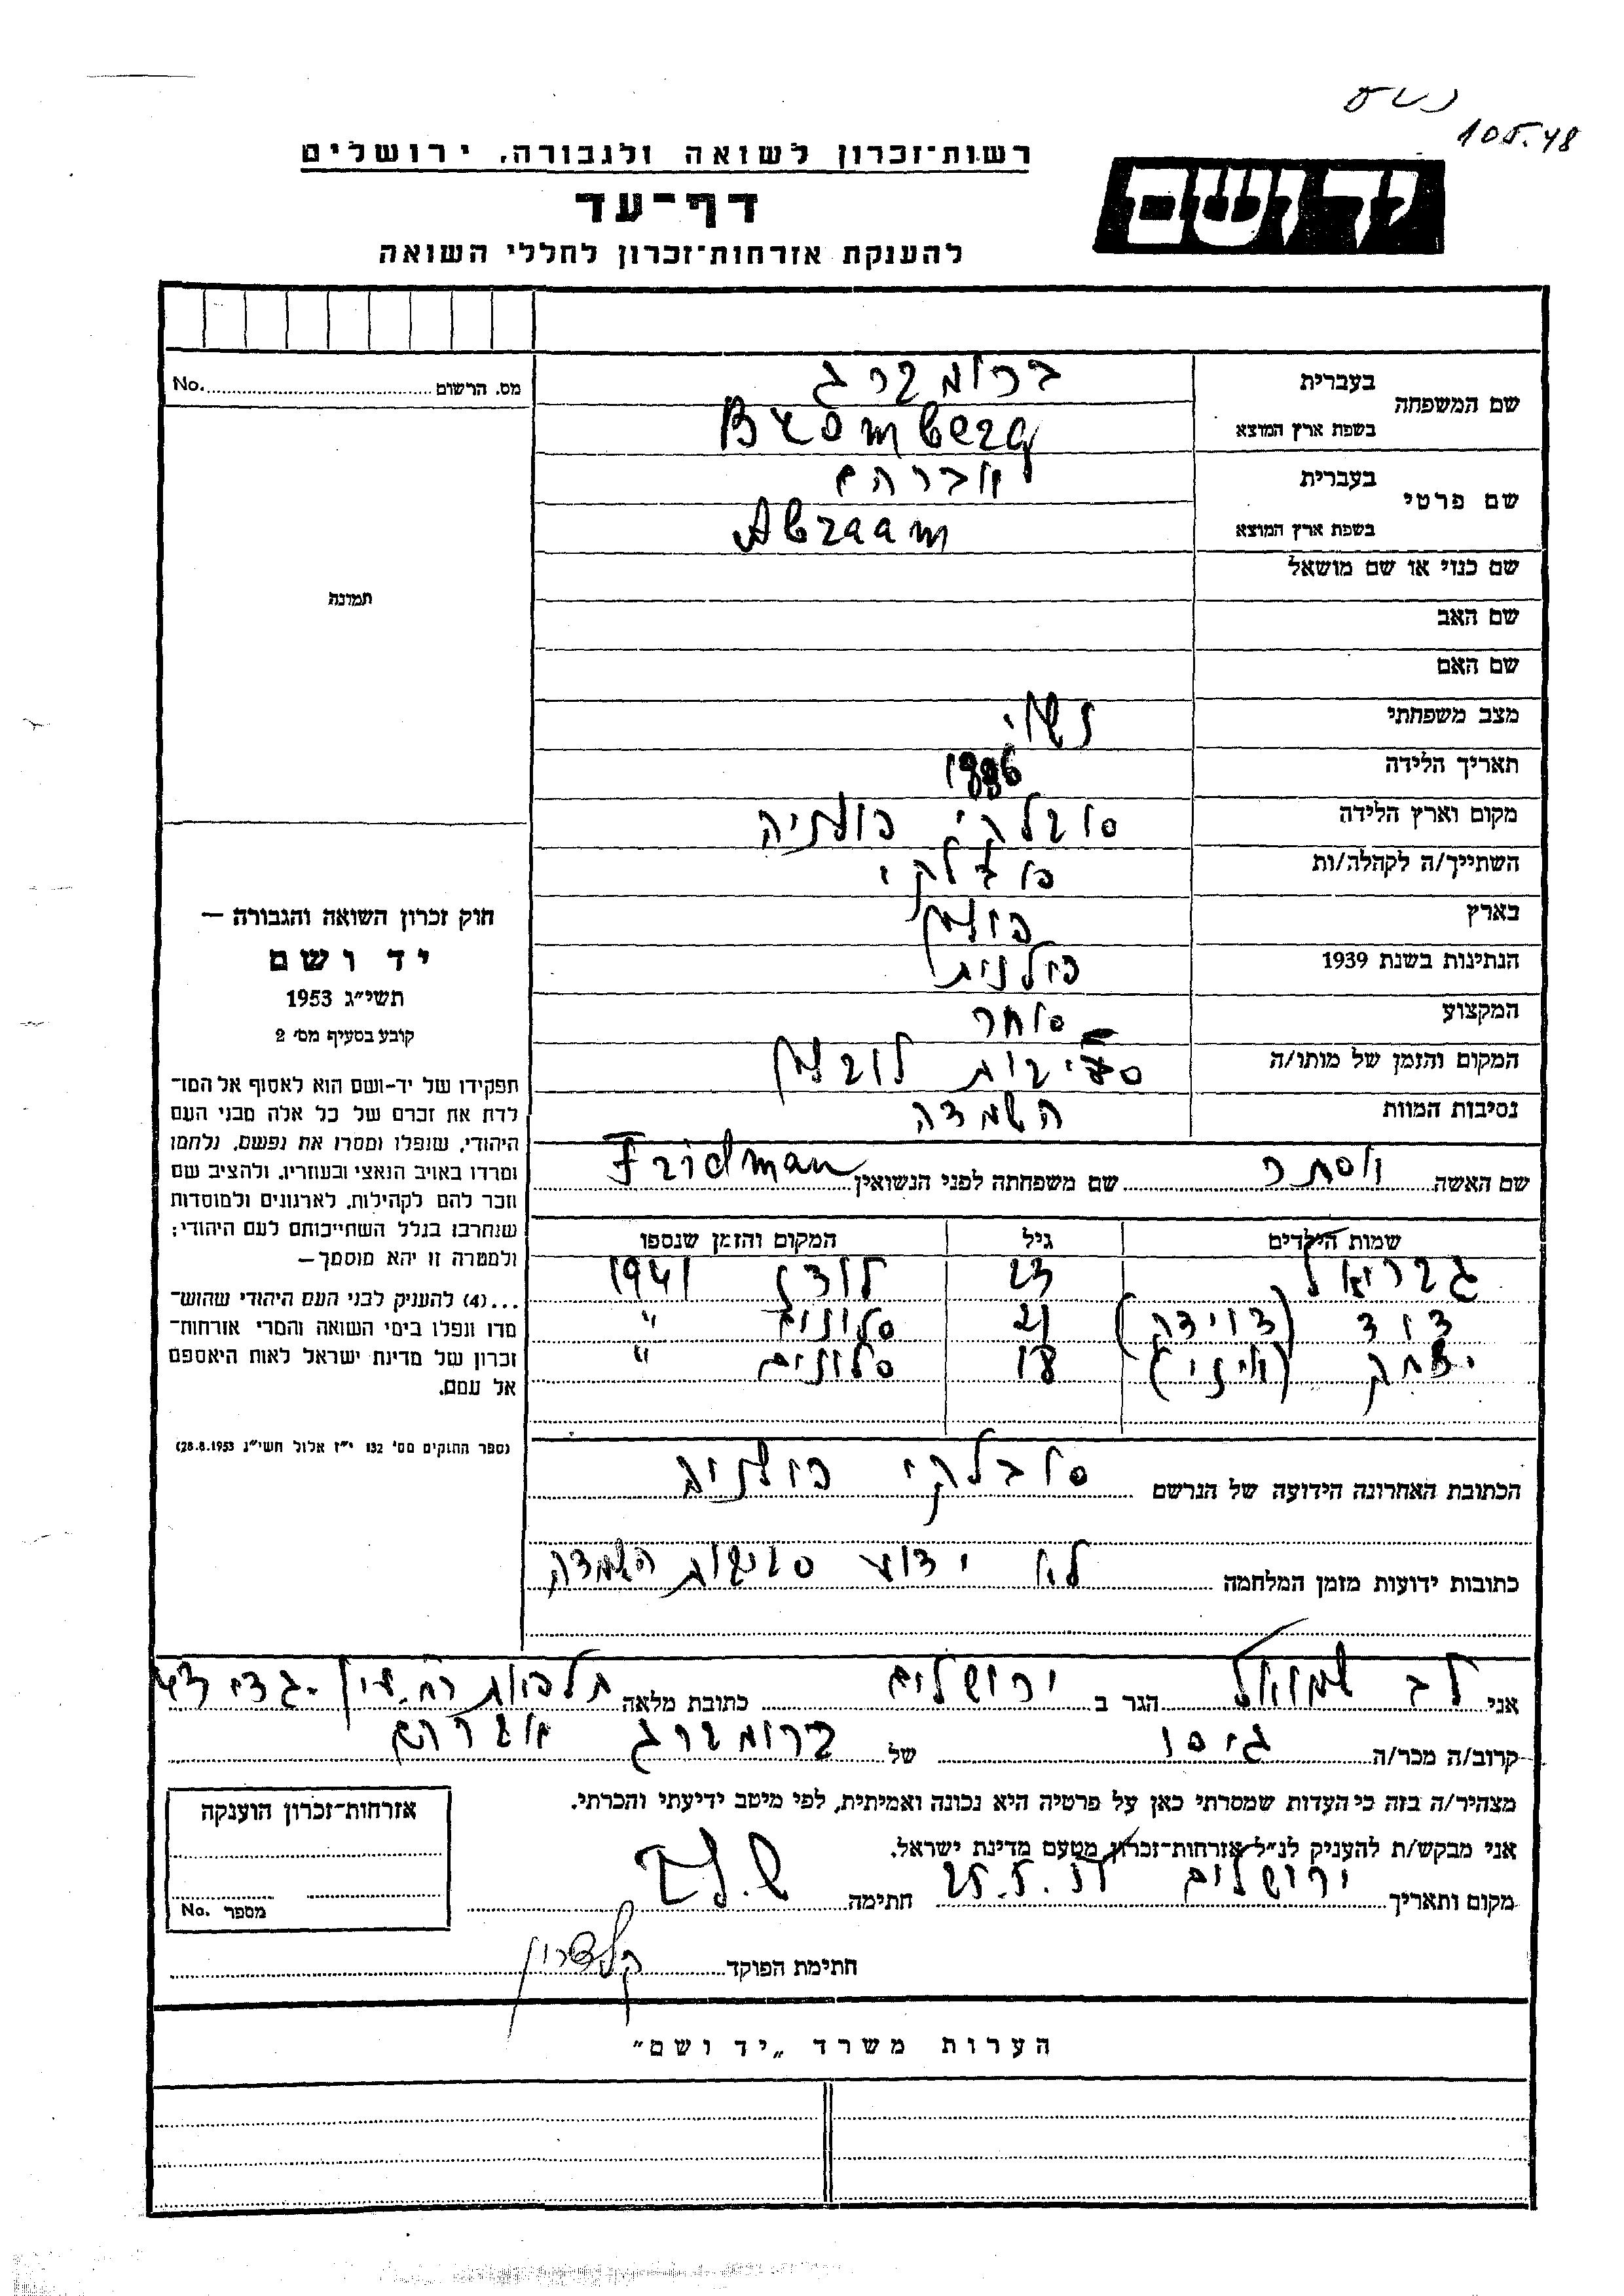 105.48
רשות־זכרון לשואה ולגבורה, ירושלים
יד ושם
דף־עד
להענקת אזרחות־זכרון לחללי השואה
מס. הרשום No.
תמונה
שם המשפחה בעברית ברומברג
בשפת ארץ המוצא Bromberg
שם פרטי בעברית אברהם
בשפת ארץ המוצא Abraam
שם כנוי או שם מושאל
שם האב
שם האם
מצב משפחתי נשוי
תאריך הלידה 1886
מקום וארץ הלידה סובלקי פולניה
השתייך/ה לקהלה/ות סובלקי
בארץ פולין
הנתינות בשנת 1939 פולנית
המקצוע סוחר
המקום והזמן של מותו/ה סביבות לובלין
נסיבות המוות השמדה
שם האשה אסתר שם משפחתה לפני הנשואין Fridman
שמות הילדים גיל המקום והזמן שנספו
גבריאל 23 לודז 1941
דוד 21 סלונים "
יצחק 18 סלונים "
הכתובת האחרונה הידועה של הנרשם סובלקי פולניה
כתובות ידועות מזמן המלחמה לא ידוע סביבות השמדה
חוק זכרון השואה והגבורה —
יד ושם
תשי"ג 1953
קובע בסעיף מס' 2
תפקידו של יד־ושם הוא לאסוף אל המו־
לדת את זכרם של כל אלה מבני העם
היהודי, שנפלו ומסרו את נפשם, נלחמו
ומרדו באויב הנאצי ובעוזריו, ולהציב שם
וזכר להם לקהילות, לארגונים ולמוסדות
שנחרבו בגלל השתייכותם לעם היהודי;
ולמטרה זו יהא מוסמך —
...(4) להעניק לבני העם היהודי שהוש־
מדו ונפלו בימי השואה והמרי אזרחות־
זכרון של מדינת ישראל לאות היאספם
אל עמם.
(ספר החוקים מס' 132 י"ז אלול תשי"ג 28.8.1953)
אני לב שמואל הגר ב ירושלים כתובת מלאה תלפיות
קרוב/ה מכר/ה גיסו של ברומברג אברהם
מצהיר/ה בזה כי העדות שמסרתי כאן על פרטיה היא נכונה ואמיתית, לפי מיטב ידיעתי והכרתי.
אני מבקש/ת להעניק לנ"ל אזרחות־זכרון מטעם מדינת ישראל.
מקום ותאריך ירושלים חתימה ש. לב
חתימת הפוקד
אזרחות־זכרון הוענקה
מספר No.
הערות משרד „יד ושם"